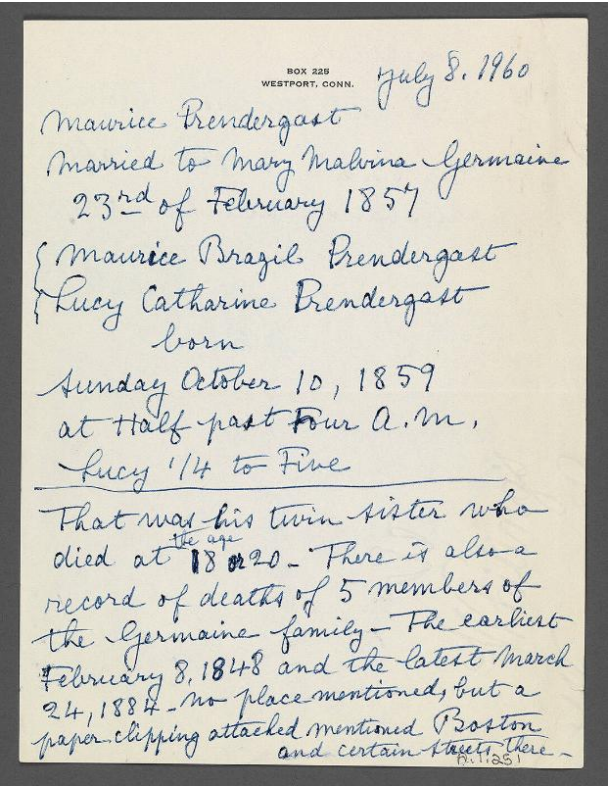 BOX 225
WESTPORT, CONN.
July 8. 1960
Maurice Prendergast
Married to Mary Malvina Germaine
23rd of February 1857
Maurice Bragil Prendergast
Lucy Catharine Prendergast
born
Sunday October 10, 1859
at Half past Four A.M.
Lucy 1/4 to Five
That was his twin sister who
the age
died at 18 or 20 - There is also a
record of deaths of 5 members of
the Germaine family - The earliest
February 8, 1848 and the latest March
24, 1884 - no place mentioned, but a
paper clipping attached mentioned Boston
and certain streets there -